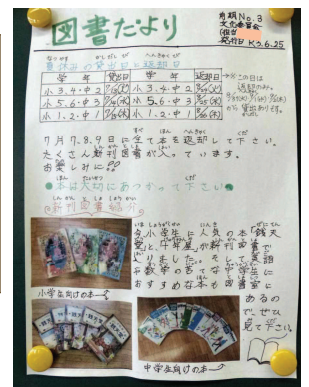 図書だより
前期No.3
文化委員会
発行日 R3.6.25
夏休みの貸出日と返却日
学年 貸出日 学年 返却日
小3.4・中2 小3.4・中2
小5.6・中3 小5.6・中3
小1.2・中1 小1.2・中1
※この日は
返却のみ。
から貸出あります。
7月7、8、9日に全て本を返却して下さい。
たくさん新刊図書が入っています。
お楽しみに!!
●本は大切にあつかって下さい●
新刊図書紹介
今、小学生に人気の本「銭天
堂」と が新刊図書で
入りました。そして英語
や数学の苦手な中学生に
おすすめな本も図書室に
あるの
で、ぜひ
見て下さい。
小学生向けの本
中学生向けの本